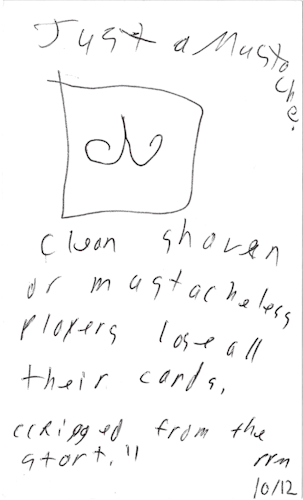 Just a Mustache.
clean shaven
or mustacheless
players lose all
their cards.
"Rigged from the
start."
rrm
10/12